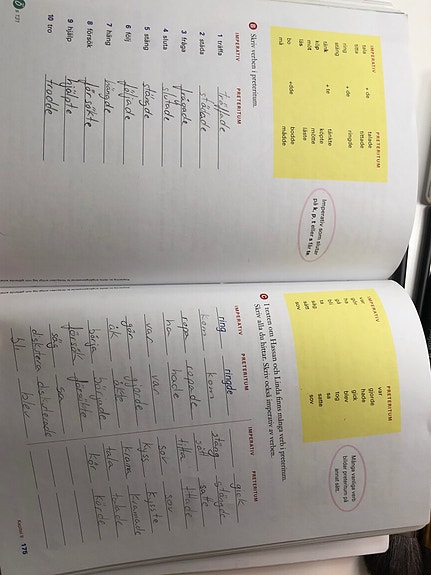 IMPERATIV PRETERITUM
tala + de talade
titta tittade
ring + de ringde
stäng
tänk + te tänkte
köp köpte
möt mötte
läs läste
bo +dde bodde
må mådde
Imperativ som slutar
på k, p, t eller s får te.
B Skriv verben i preteritum.
IMPERATIV PRETERITUM
1 träffa träffade
2 städa städade
3 fråga frågade
4 sluta slutade
5 stäng stängde
6 följ följade
7 häng hängde
8 försök försökte
9 hjälp hjälpte
10 tro trodde
121
IMPERATIV PRETERITUM
var var
gör gjorde
ha hade
gå gick
bli blev
ta tog
säg sa
sätt satte
sov sov
Många vanliga verb
bildar preteritum på
annat sätt.
C I texten om Hassan och Linda finns många verb i preteritum.
Skriv alla du hittar. Skriv också imperativ av verben.
IMPERATIV PRETERITUM IMPERATIV PRETERITUM
ring ringde gick
kom kom stäng stängde
ropa ropade sätt satte
ha hade titta tittade
var var sov sov
gör gjorde kyss kysste
åk åkte krama kramade
börja började tala talade
försök försökte kör körde
säg sa
diskutera diskuterade
bli blev
175